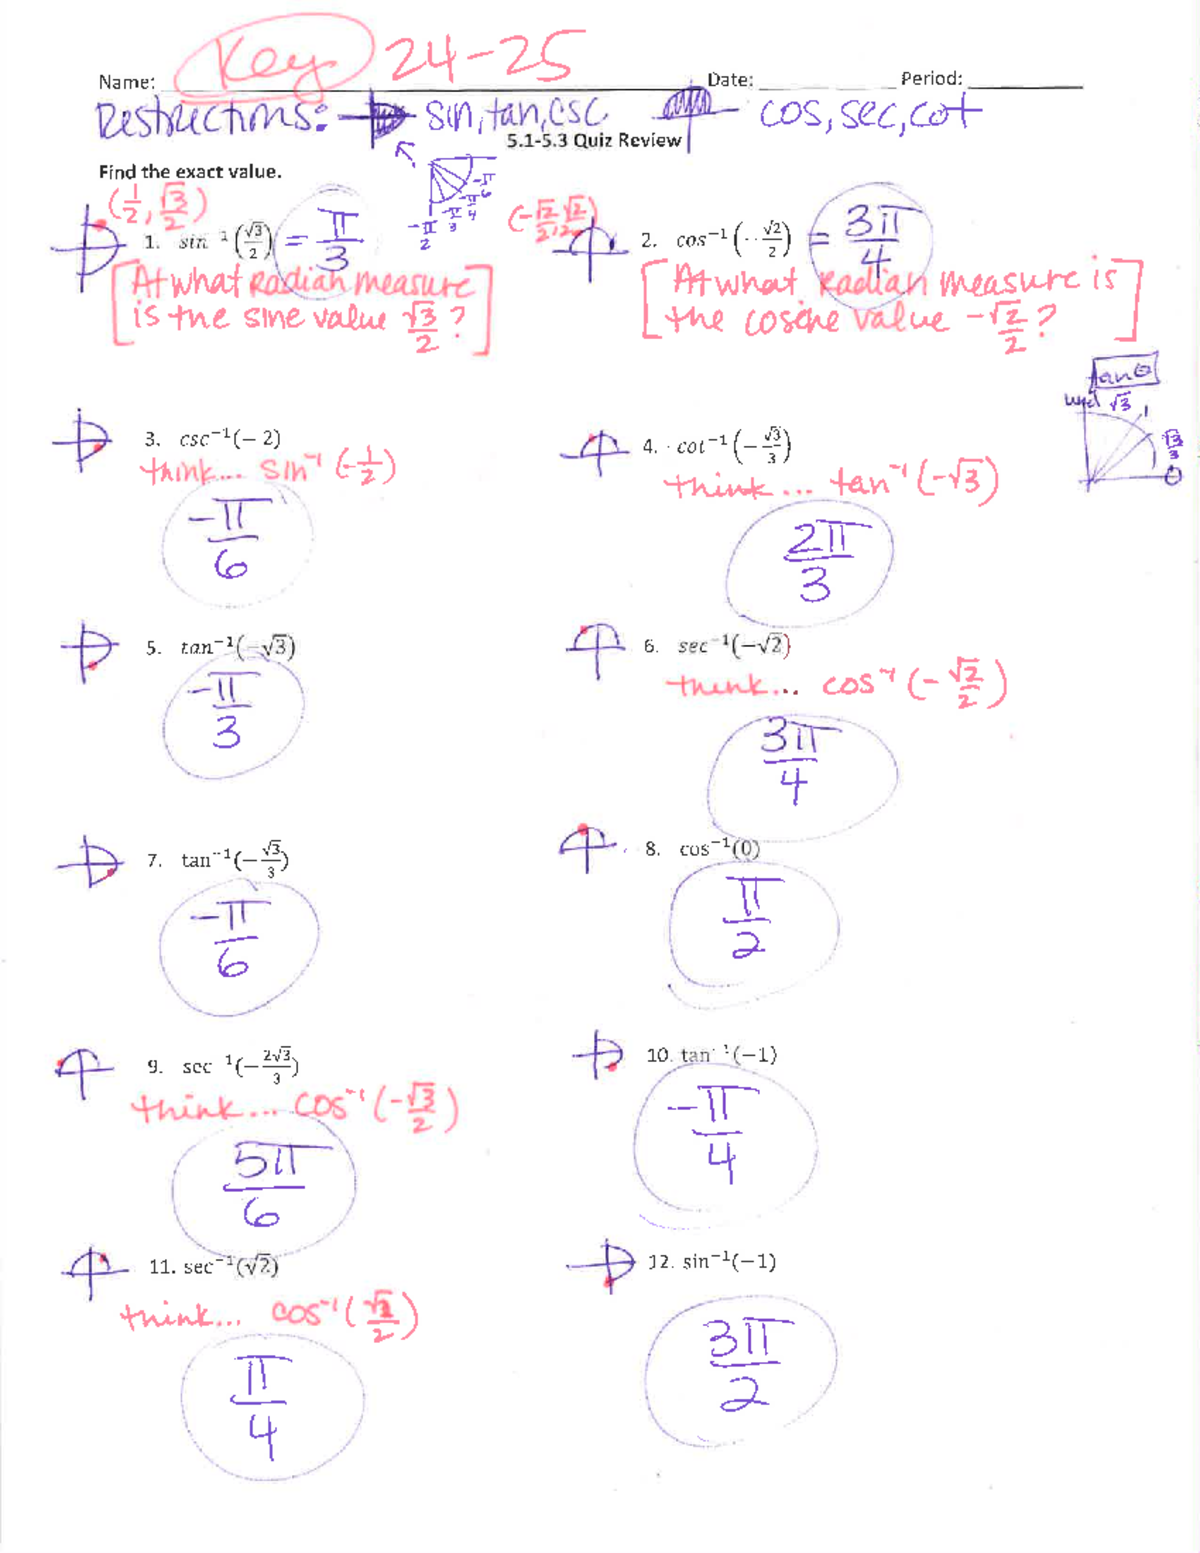 Key 24-25
Name: Date: Period:
Restrictions: sin, tan, csc cos, sec, cot
5.1-5.3 Quiz Review
Find the exact value.
-π/6
-π/4
-π/3
-π/2
(1/2, √3/2)
1. sin⁻¹(√3/2) = π/3
[At what Radian measure
is the sine value √3/2?]
(-√2/2, √2/2)
2. cos⁻¹(-√2/2) = 3π/4
[At what Radian measure is
the cosine value -√2/2?]
tanθ
und √3 1
√3/3
0
3. csc⁻¹(-2)
think... sin⁻¹(-1/2)
-π/6
4. cot⁻¹(-√3/3)
think... tan⁻¹(-√3)
2π/3
5. tan⁻¹(-√3)
-π/3
6. sec⁻¹(-√2)
think... cos⁻¹(-√2/2)
3π/4
7. tan⁻¹(-√3/3)
-π/6
8. cos⁻¹(0)
π/2
9. sec⁻¹(-2√3/3)
think... cos⁻¹(-√3/2)
5π/6
10. tan⁻¹(-1)
-π/4
11. sec⁻¹(√2)
think... cos⁻¹(√2/2)
π/4
12. sin⁻¹(-1)
3π/2